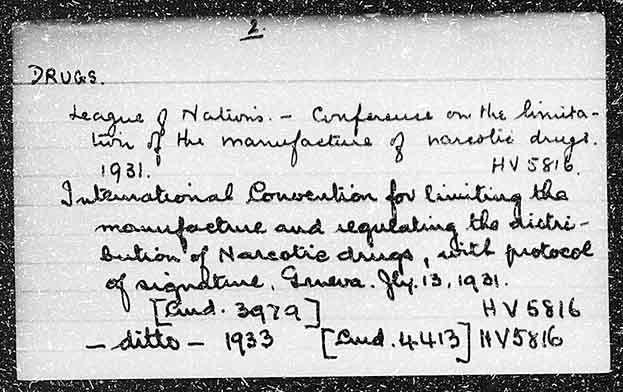 2.
DRUGS.
League of Nations. – Conference on the limita-
tion of the manufacture of narcotic drugs.
1931. HV5816.
International Convention for limiting the
manufacture and regulating the distri-
bution of Narcotic drugs, with protocol
of signature, Geneva. Jly. 13, 1931.
[Cmd. 3979] HV5816
– ditto – 1933 [Cmd. 4413] HV5816